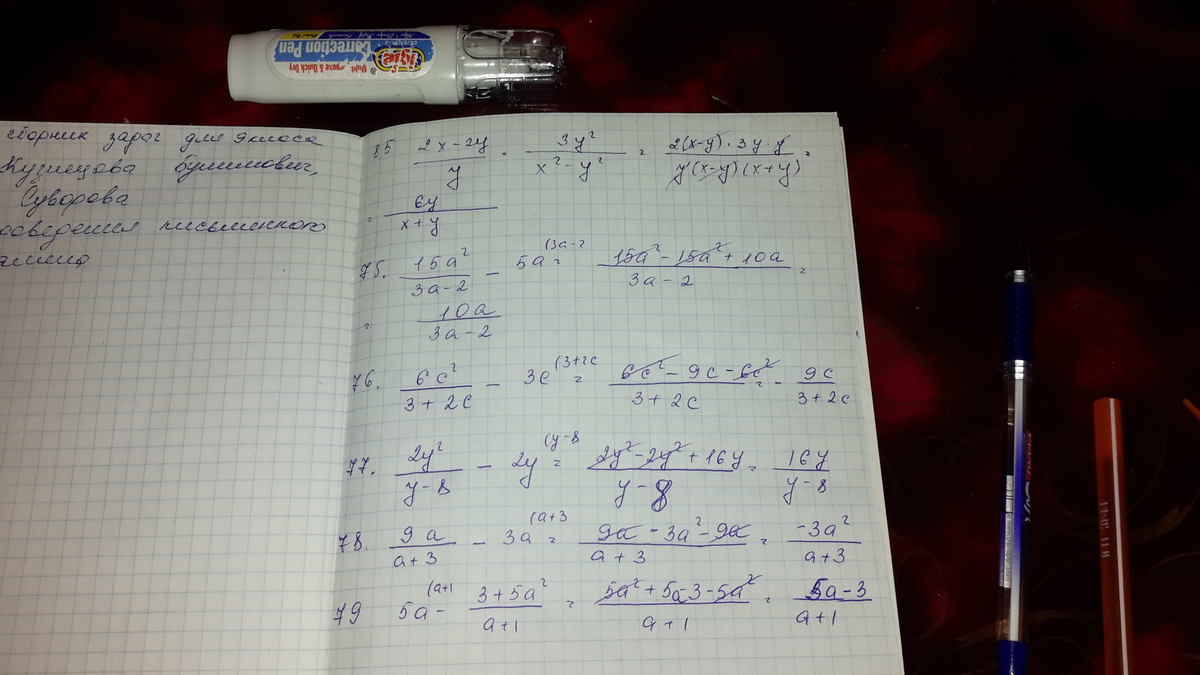 igle
Correction Pen
Multi Purpose & Quick Dry
сборник задач для 9 класса
Кузнецова Бунимович,
Суворова
письменного
85 (2x-2y)/y · 3y²/(x²-y²) = (2(x-y)·3y·y)/(y(x-y)(x+y)) =
= 6y/(x+y)
75. 15a²/(3a-2) - 5a (3a-2 = (15a²-15a²+10a)/(3a-2) =
= 10a/(3a-2)
76. 6c²/(3+2c) - 3c (3+2c = (6c²-9c-6c²)/(3+2c) = - 9c/(3+2c)
77. 2y²/(y-8) - 2y (y-8 = (2y²-2y²+16y)/(y-8) = 16y/(y-8)
78. 9a/(a+3) - 3a (a+3 = (9a-3a²-9a)/(a+3) = -3a²/(a+3)
79 5a (a+1 - (3+5a²)/(a+1) = (5a²+5a-3-5a²)/(a+1) = (5a-3)/(a+1)